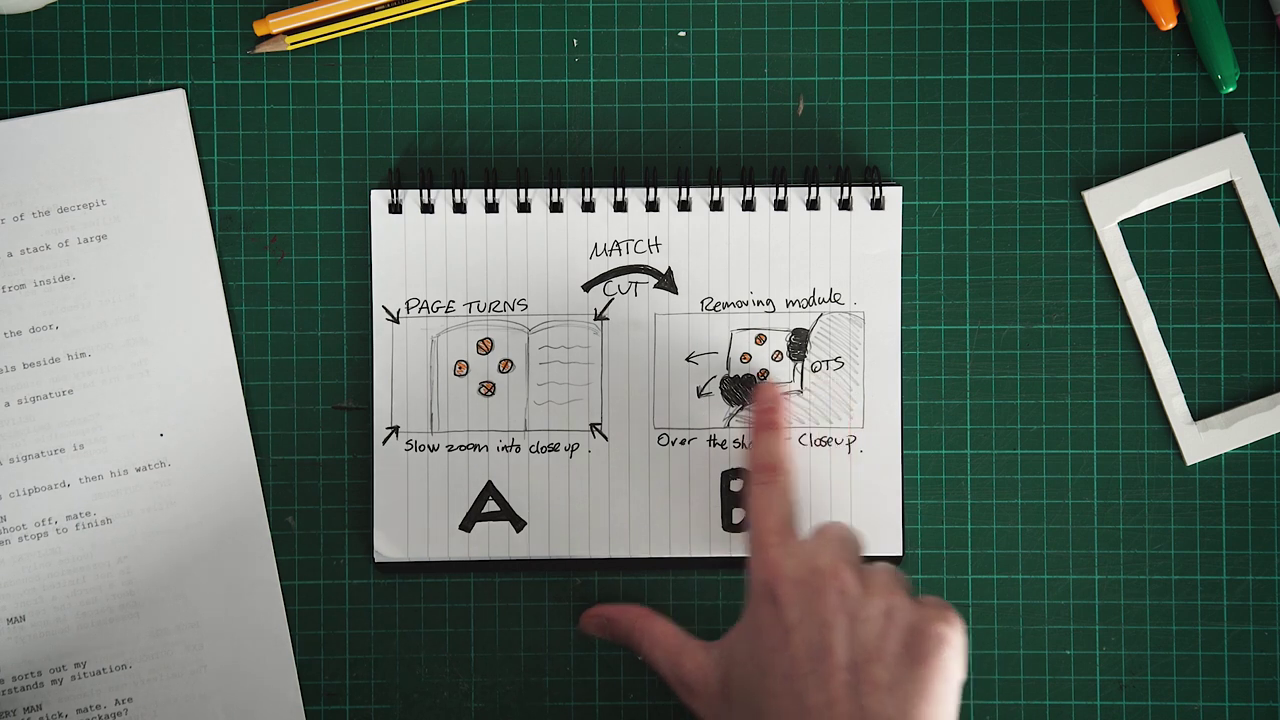 r of the decrepit
a stack of large
from inside.
the door,
els beside him.
a signature
signature is
clipboard, then his watch.
N
shoot off, mate.
en stops to finish
MAN
sorts out my
rstands my situation.
ERY MAN
sick, mate. Are
package?
MATCH
CUT
PAGE TURNS
Slow zoom into close up.
A
Removing module.
OTS
Over the Closeup.
B